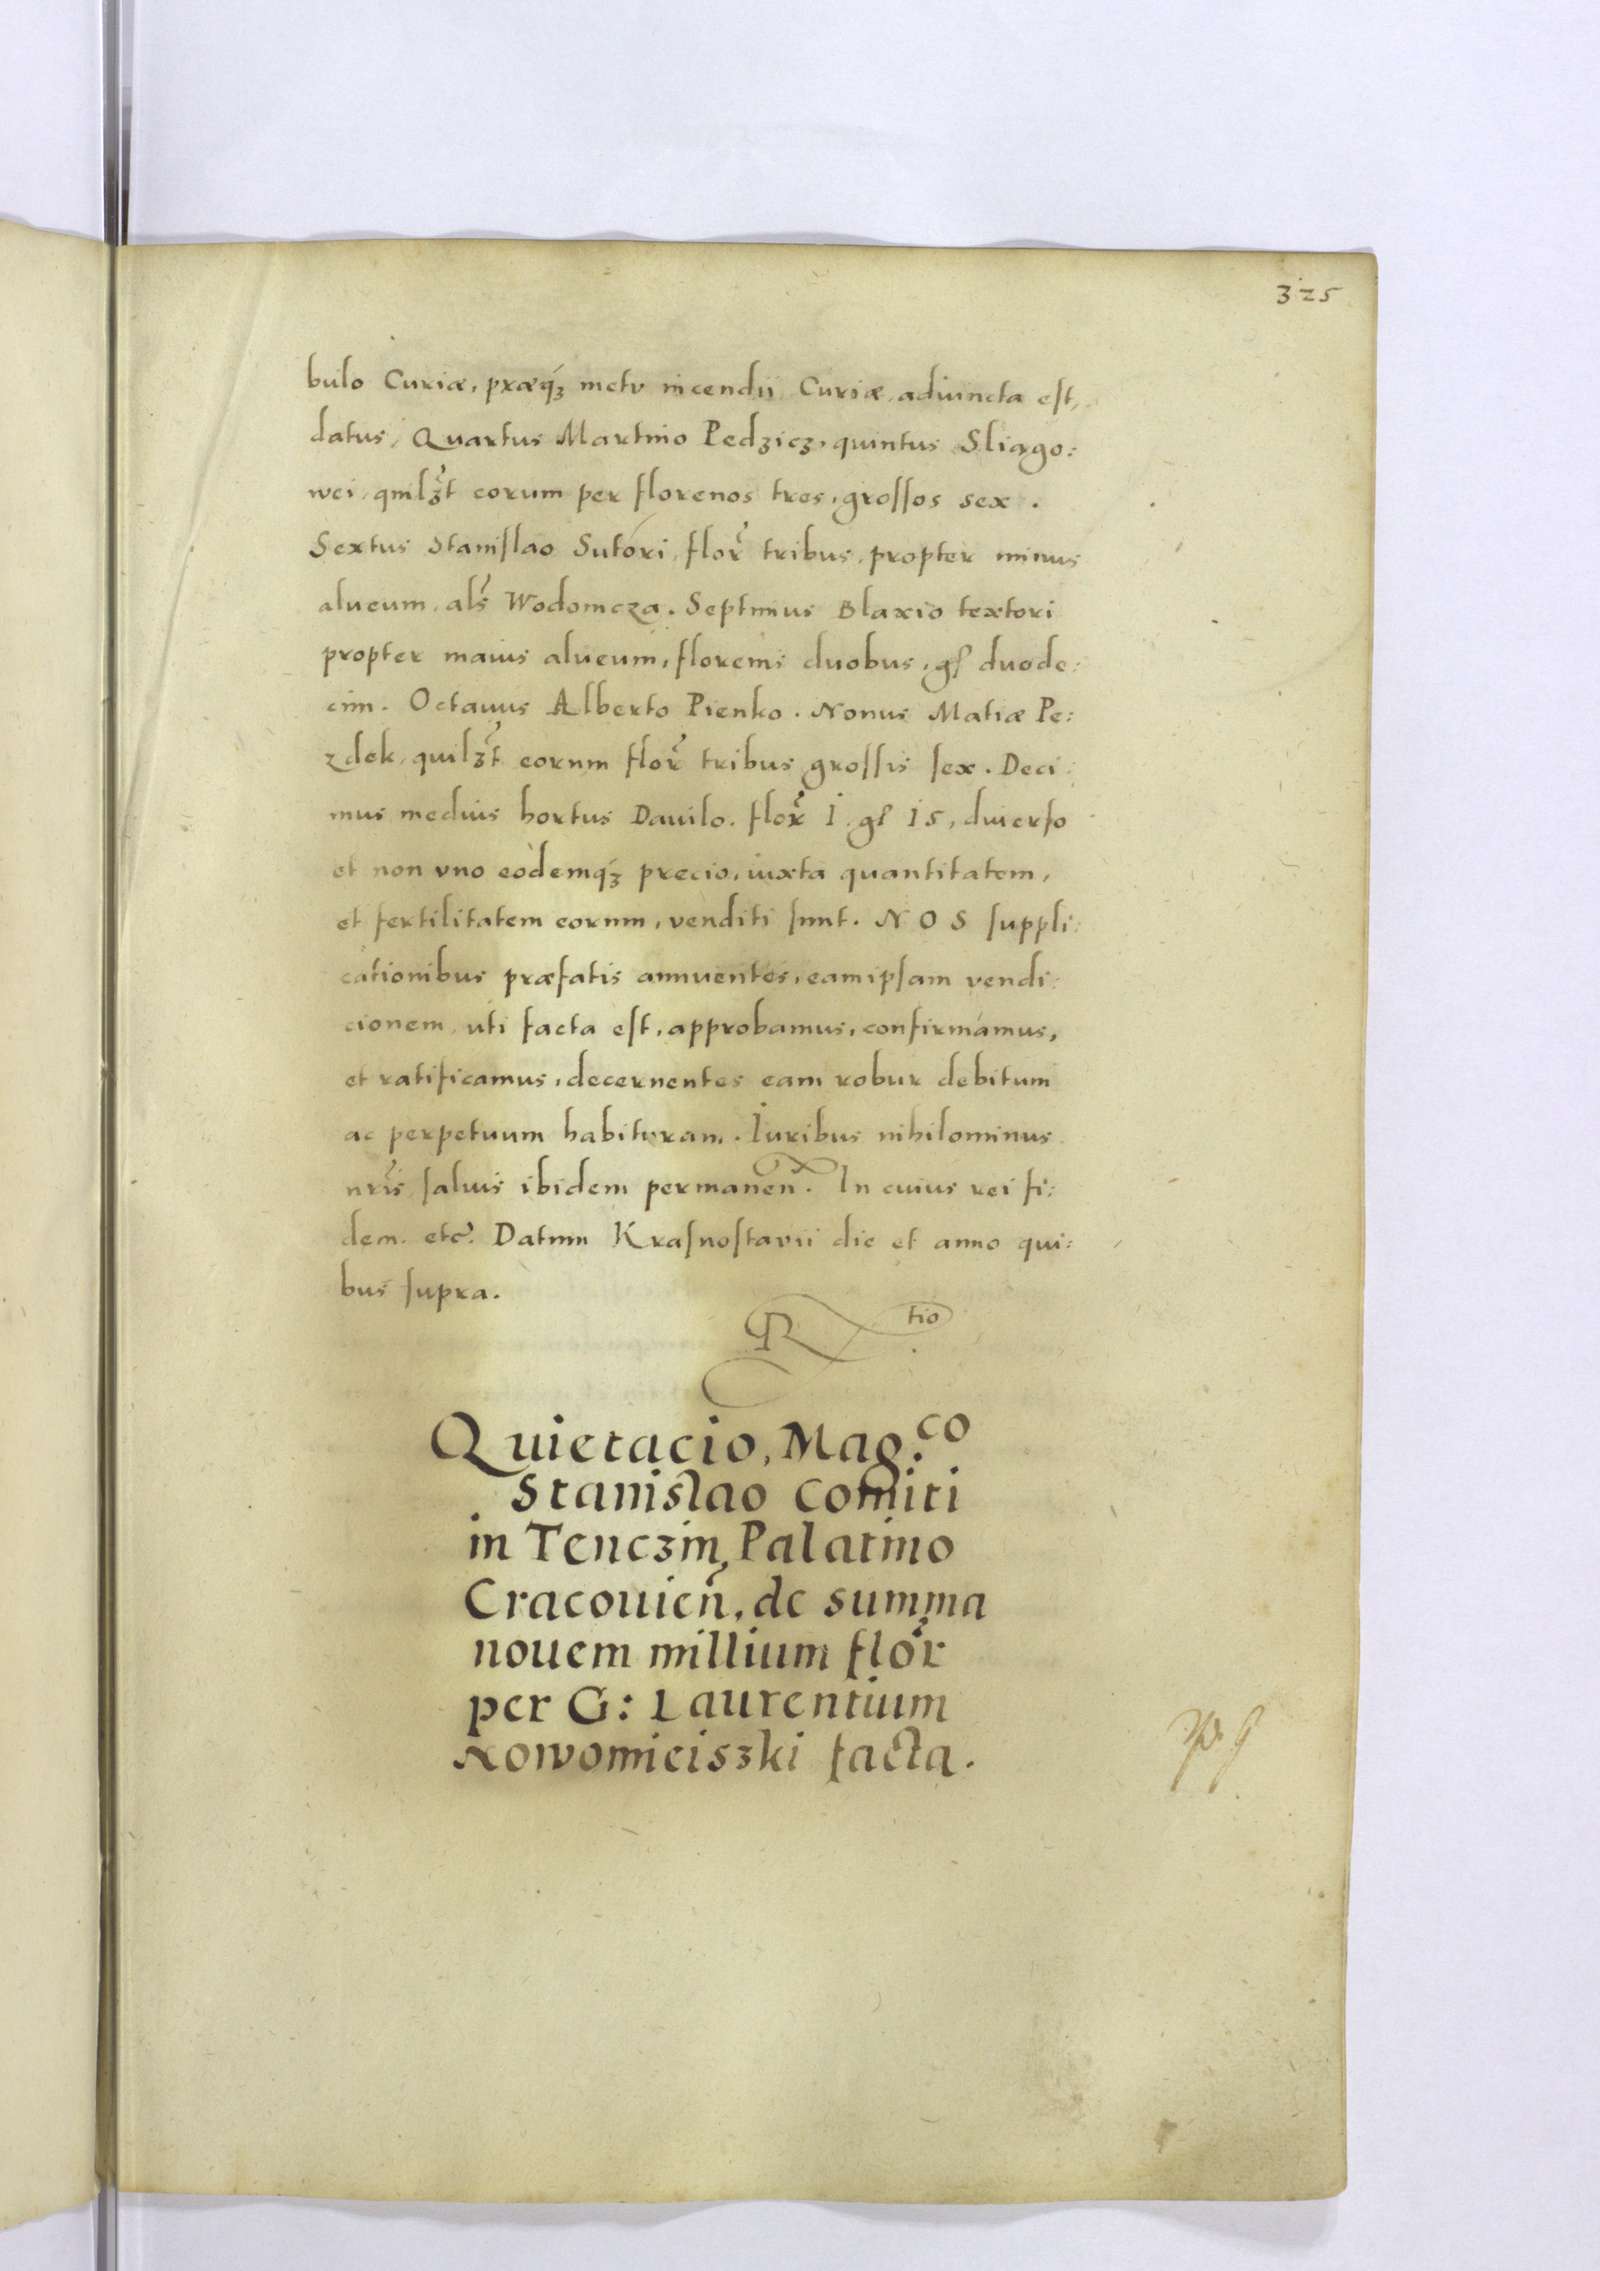 325
bulo Curiæ, præq́ꝫ metu incendii Curiæ, adiuncta est,
datus, Quartus Martino Pedzicz, quintus Sliago:
wei, quilꝫt eorum per florenos tres, grossos sex.
Sextus Stanislao Sutori, flor̃ tribus, propter minus
alueum, als̃ Wodomcza. Septimus Blaxio textori
propter maius alueum, florenis duobus, gſ duode:
cim. Octauus Alberto Pienko. Nonus Matiæ Pe:
zdek, quilꝫt eorum flor̃ tribus grossis sex. Deci:
mus medius hortus Danilo. flor̃ I. gſ 15, diuerso
et non vno eòdemq́ꝫ precio, iuxta quantitatem,
et fertilitatem eorum, venditi sunt. NOS suppli:
cationibus præfatis annuentes, eamipsam vendi:
cionem, uti facta est, approbamus, confirmamus,
et ratificamus, decernentes eam robur debitum
ac perpetuum habituram. Iuribus nihilominus
nr̃is saluis ibidem permaneñ. In cuius rei fi:
dem. etc̃. Datum Krasnostavii die et anno qui:
bus supra.
R tio
Quietacio, Mag.co
Stanislao Comiti
in Tenczin, Palatino
Cracouieñ, de summa
nouem millium flor̃
per G: Laurentium
Nowomieiszki facta.